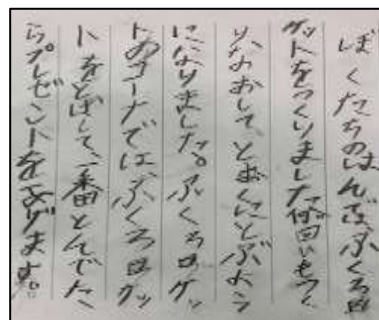 ぼくたちのはんで、ふくろロ
ケットをつくりました何回もつく
りなおして、とおくにとぶよう
になりました。ふくろロケッ
トのコーナーではふくろロケッ
トをとばして、一番とんでた
らプレゼントをあげます。